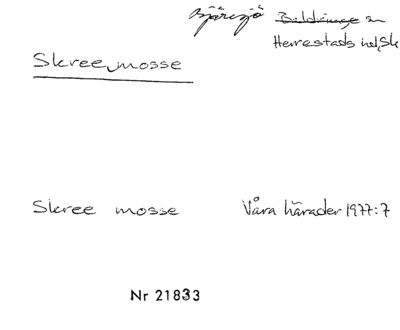 Bjäresjö Baldringe sn
Herrestads hd, Sk
Skree mosse
Skree mosse Våra härader 1977:7
Nr 21833